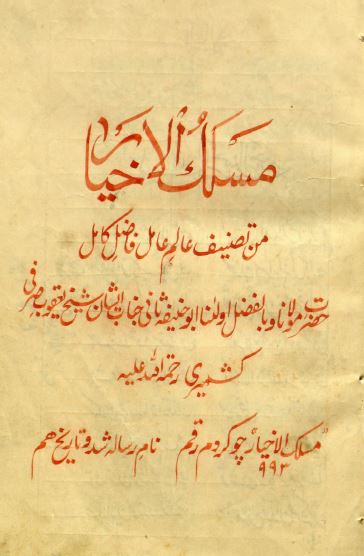 مسلک الاخیار
من تصنیف عالم عامل فاضل کامل
حضرت مولانا و بالفضل اولٰنا ابوحنیفهٔ ثانی جناب ایشان شیخ یعقوب صرفی
کشمیری رحمة الله علیه
"مسلک الاخیار" چو کردم رقم نام رساله شد و تاریخ هم
۹۹۳